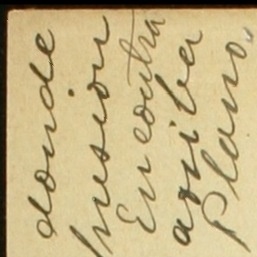 donde
presion
Encontra
arriba
Plano.